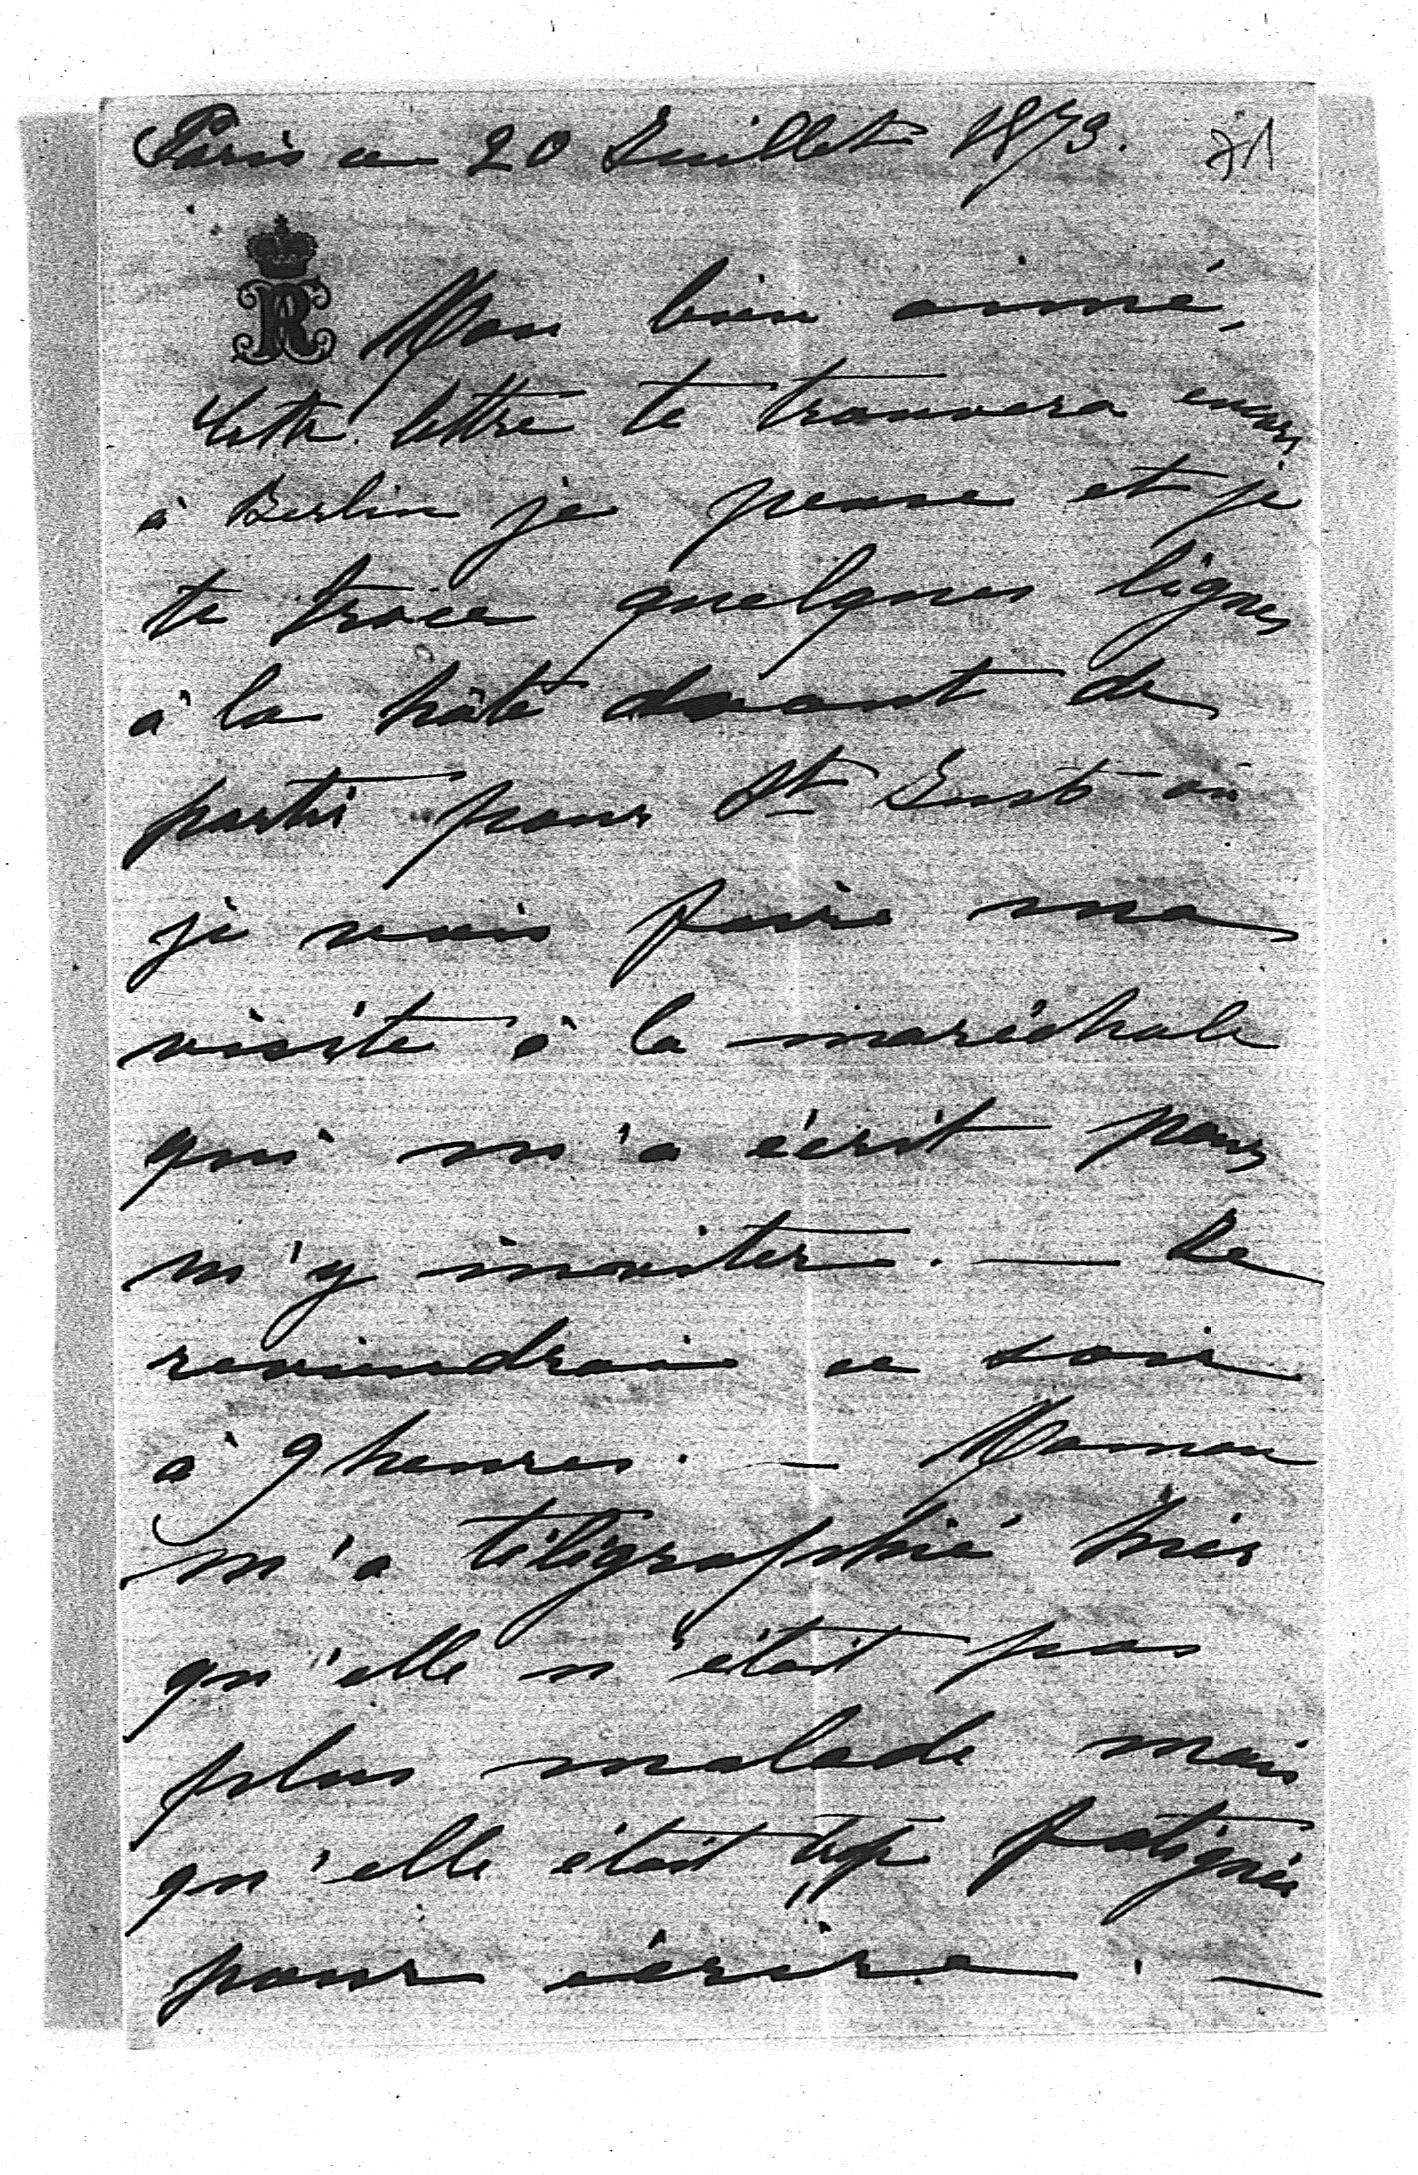 Paris ce 20 Juillet 1873.
Mon bien aimé,
Cette lettre te trouvera encore
à Berlin je pense et je
te trace quelques lignes
à la hâte avant de
partir pour St Just où
je vais faire ma
visite à la maréchale
qui m'a écrit pour
m'y inviter. — Je
reviendrai ce soir
à 9 heures. — Maman
m'a télégraphié hier
qu'elle n'était pas
plus malade mais
qu'elle était trop fatiguée
pour écrire. —